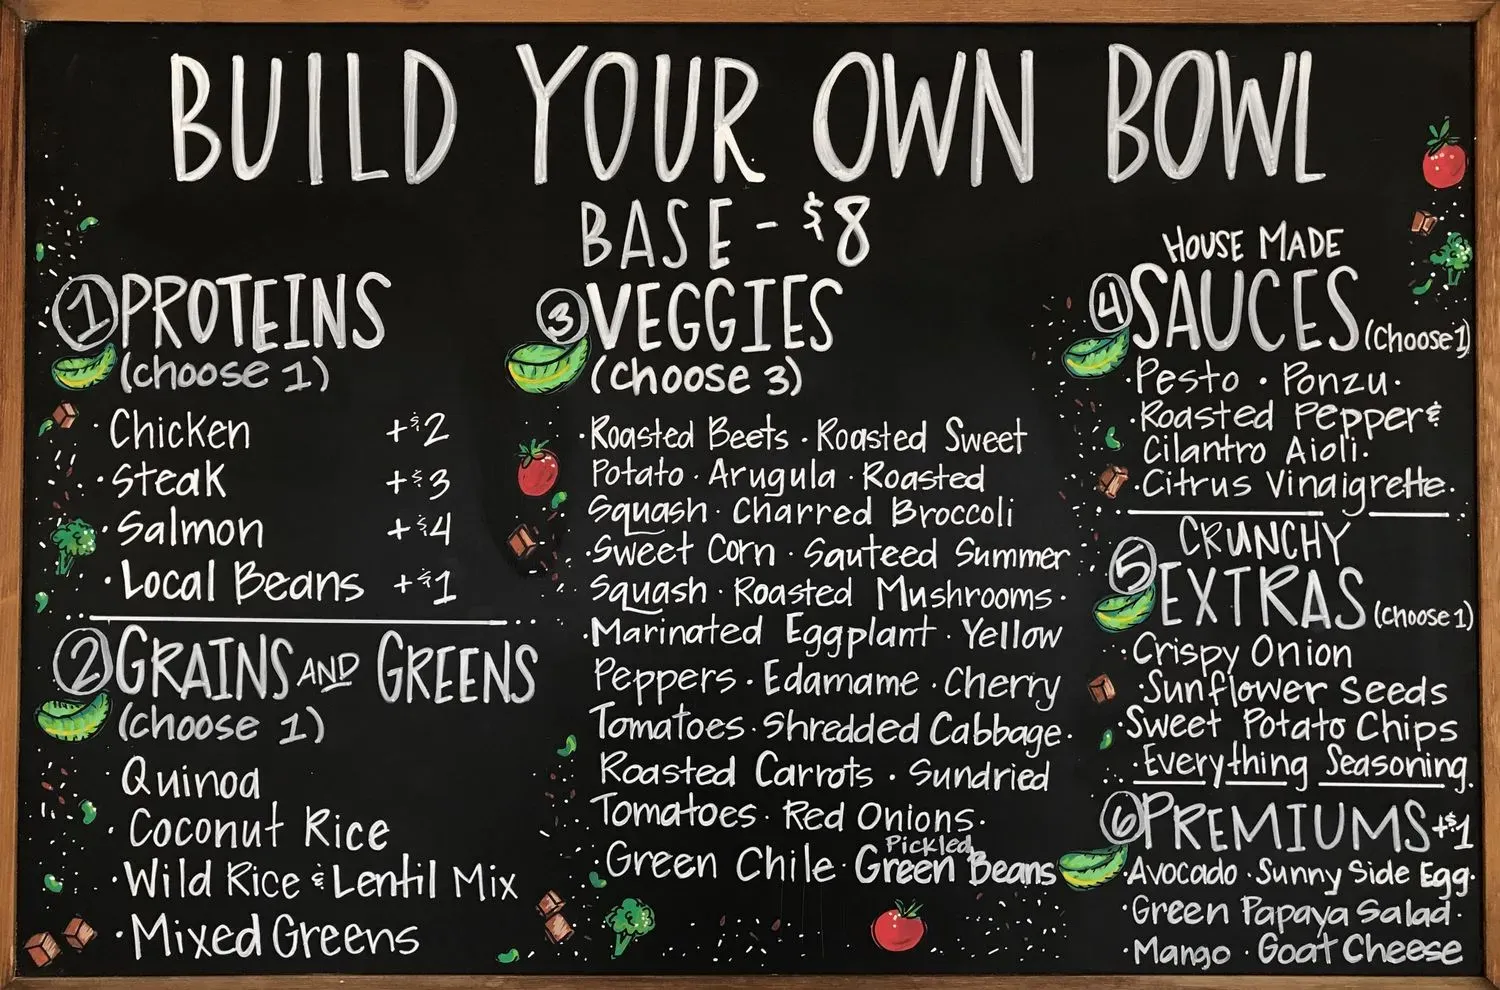 BUILD YOUR OWN BOWL
BASE - $8
1 PROTEINS
(choose 1)
· Chicken +$2
· Steak +$3
· Salmon +$4
· Local Beans +$1
2 GRAINS AND GREENS
(choose 1)
· Quinoa
· Coconut Rice
· Wild Rice & Lentil Mix
· Mixed Greens
3 VEGGIES
(choose 3)
· Roasted Beets · Roasted Sweet
Potato · Arugula · Roasted
Squash · Charred Broccoli
· Sweet Corn · Sauteed Summer
Squash · Roasted Mushrooms ·
· Marinated Eggplant · Yellow
Peppers · Edamame · Cherry
Tomatoes · Shredded Cabbage ·
Roasted Carrots · Sundried
Tomatoes · Red Onions ·
· Green Chile · Pickled Green Beans
HOUSE MADE
4 SAUCES (choose 1)
· Pesto · Ponzu ·
· Roasted Pepper &
Cilantro Aioli ·
· Citrus Vinaigrette ·
CRUNCHY
5 EXTRAS (choose 1)
· Crispy Onion
· Sunflower Seeds
· Sweet Potato Chips
· Everything Seasoning
6 PREMIUMS +$1
· Avocado · Sunny Side Egg ·
· Green Papaya Salad ·
· Mango · Goat Cheese